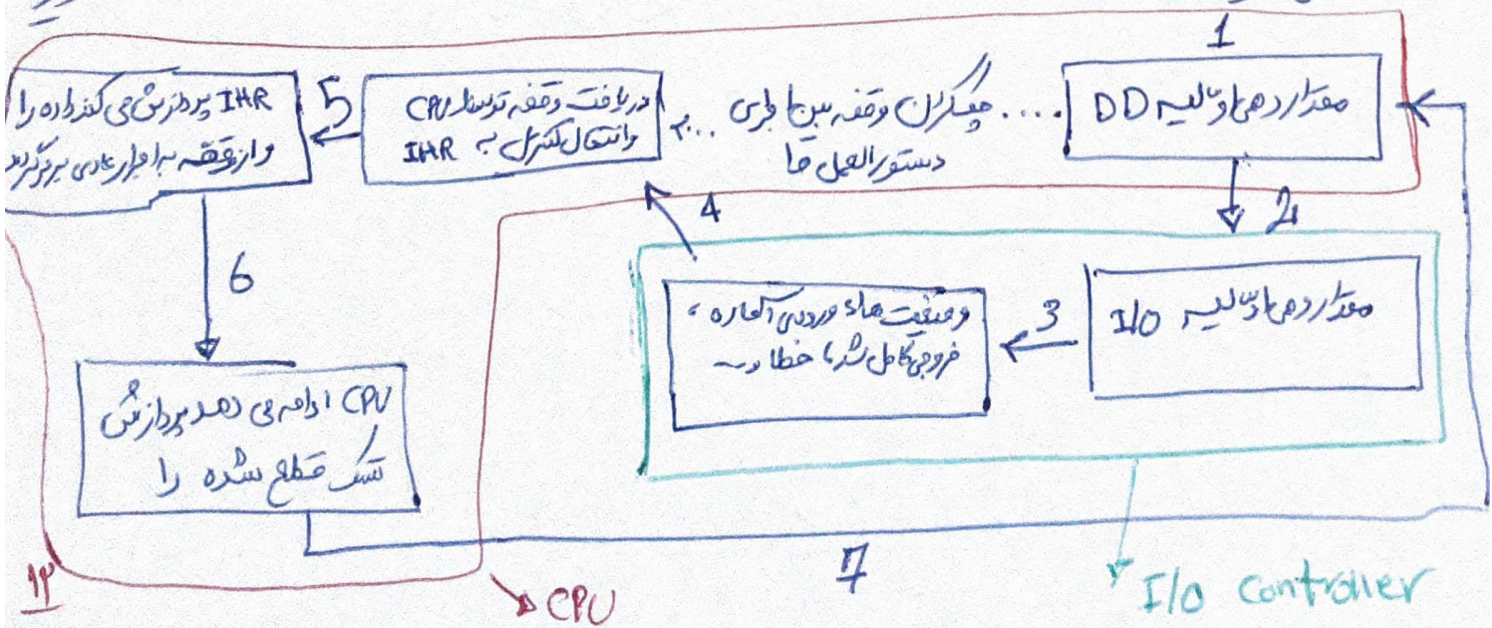 1
مقداردهی اولیه DD
.... چک کردن وقفه بین اجرای ...
دستورالعمل ها
دریافت وقفه توسط CPU
وانتقال کنترل به IHR
5
IHR پردازش می کند داده را
و از وقفه به اجرای عادی برمی‌گردد
2
4
مقداردهی اولیه I/O
3
وضعیت های ورودی آماده ،
خروجی کامل شد یا خطا و~
6
CPU ادامه می دهد پردازش
تسک قطع شده را
7
I/O controller
CPU
13